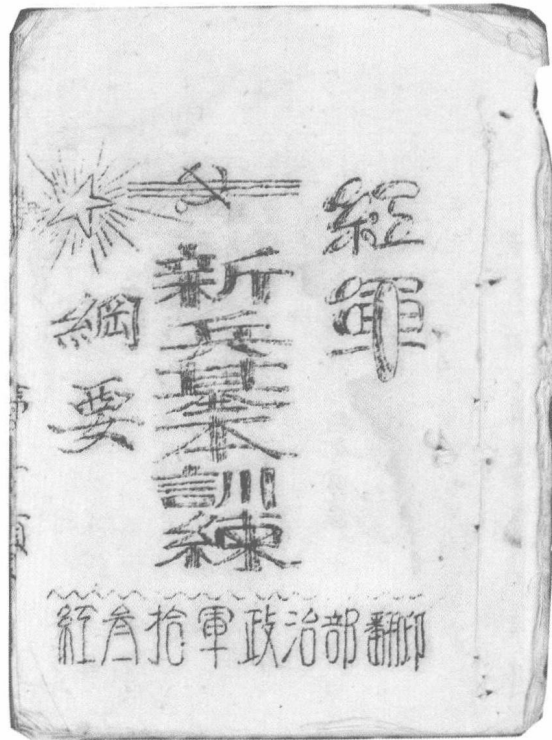 紅軍
新兵基本訓練
綱要
紅叁拾軍政治部翻印